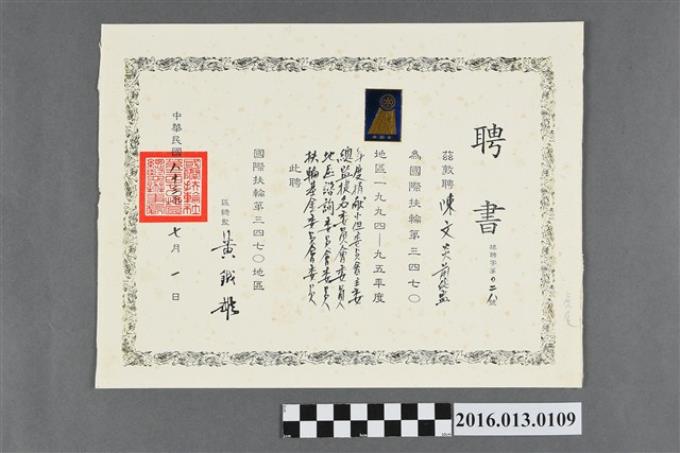 聘書
地聘字第〇二八號
茲敦聘陳文炎前總監
為國際扶輪第三四七〇
地區一九九四—九五年度
年度捐獻小組委員會主委
總監提名委員會委員
地區諮詢委員會委員
扶輪基金委員會委員
此聘
國際扶輪第三四七〇地區
區總監 黃
中華民國八十三年七月一日
2016.013.0109